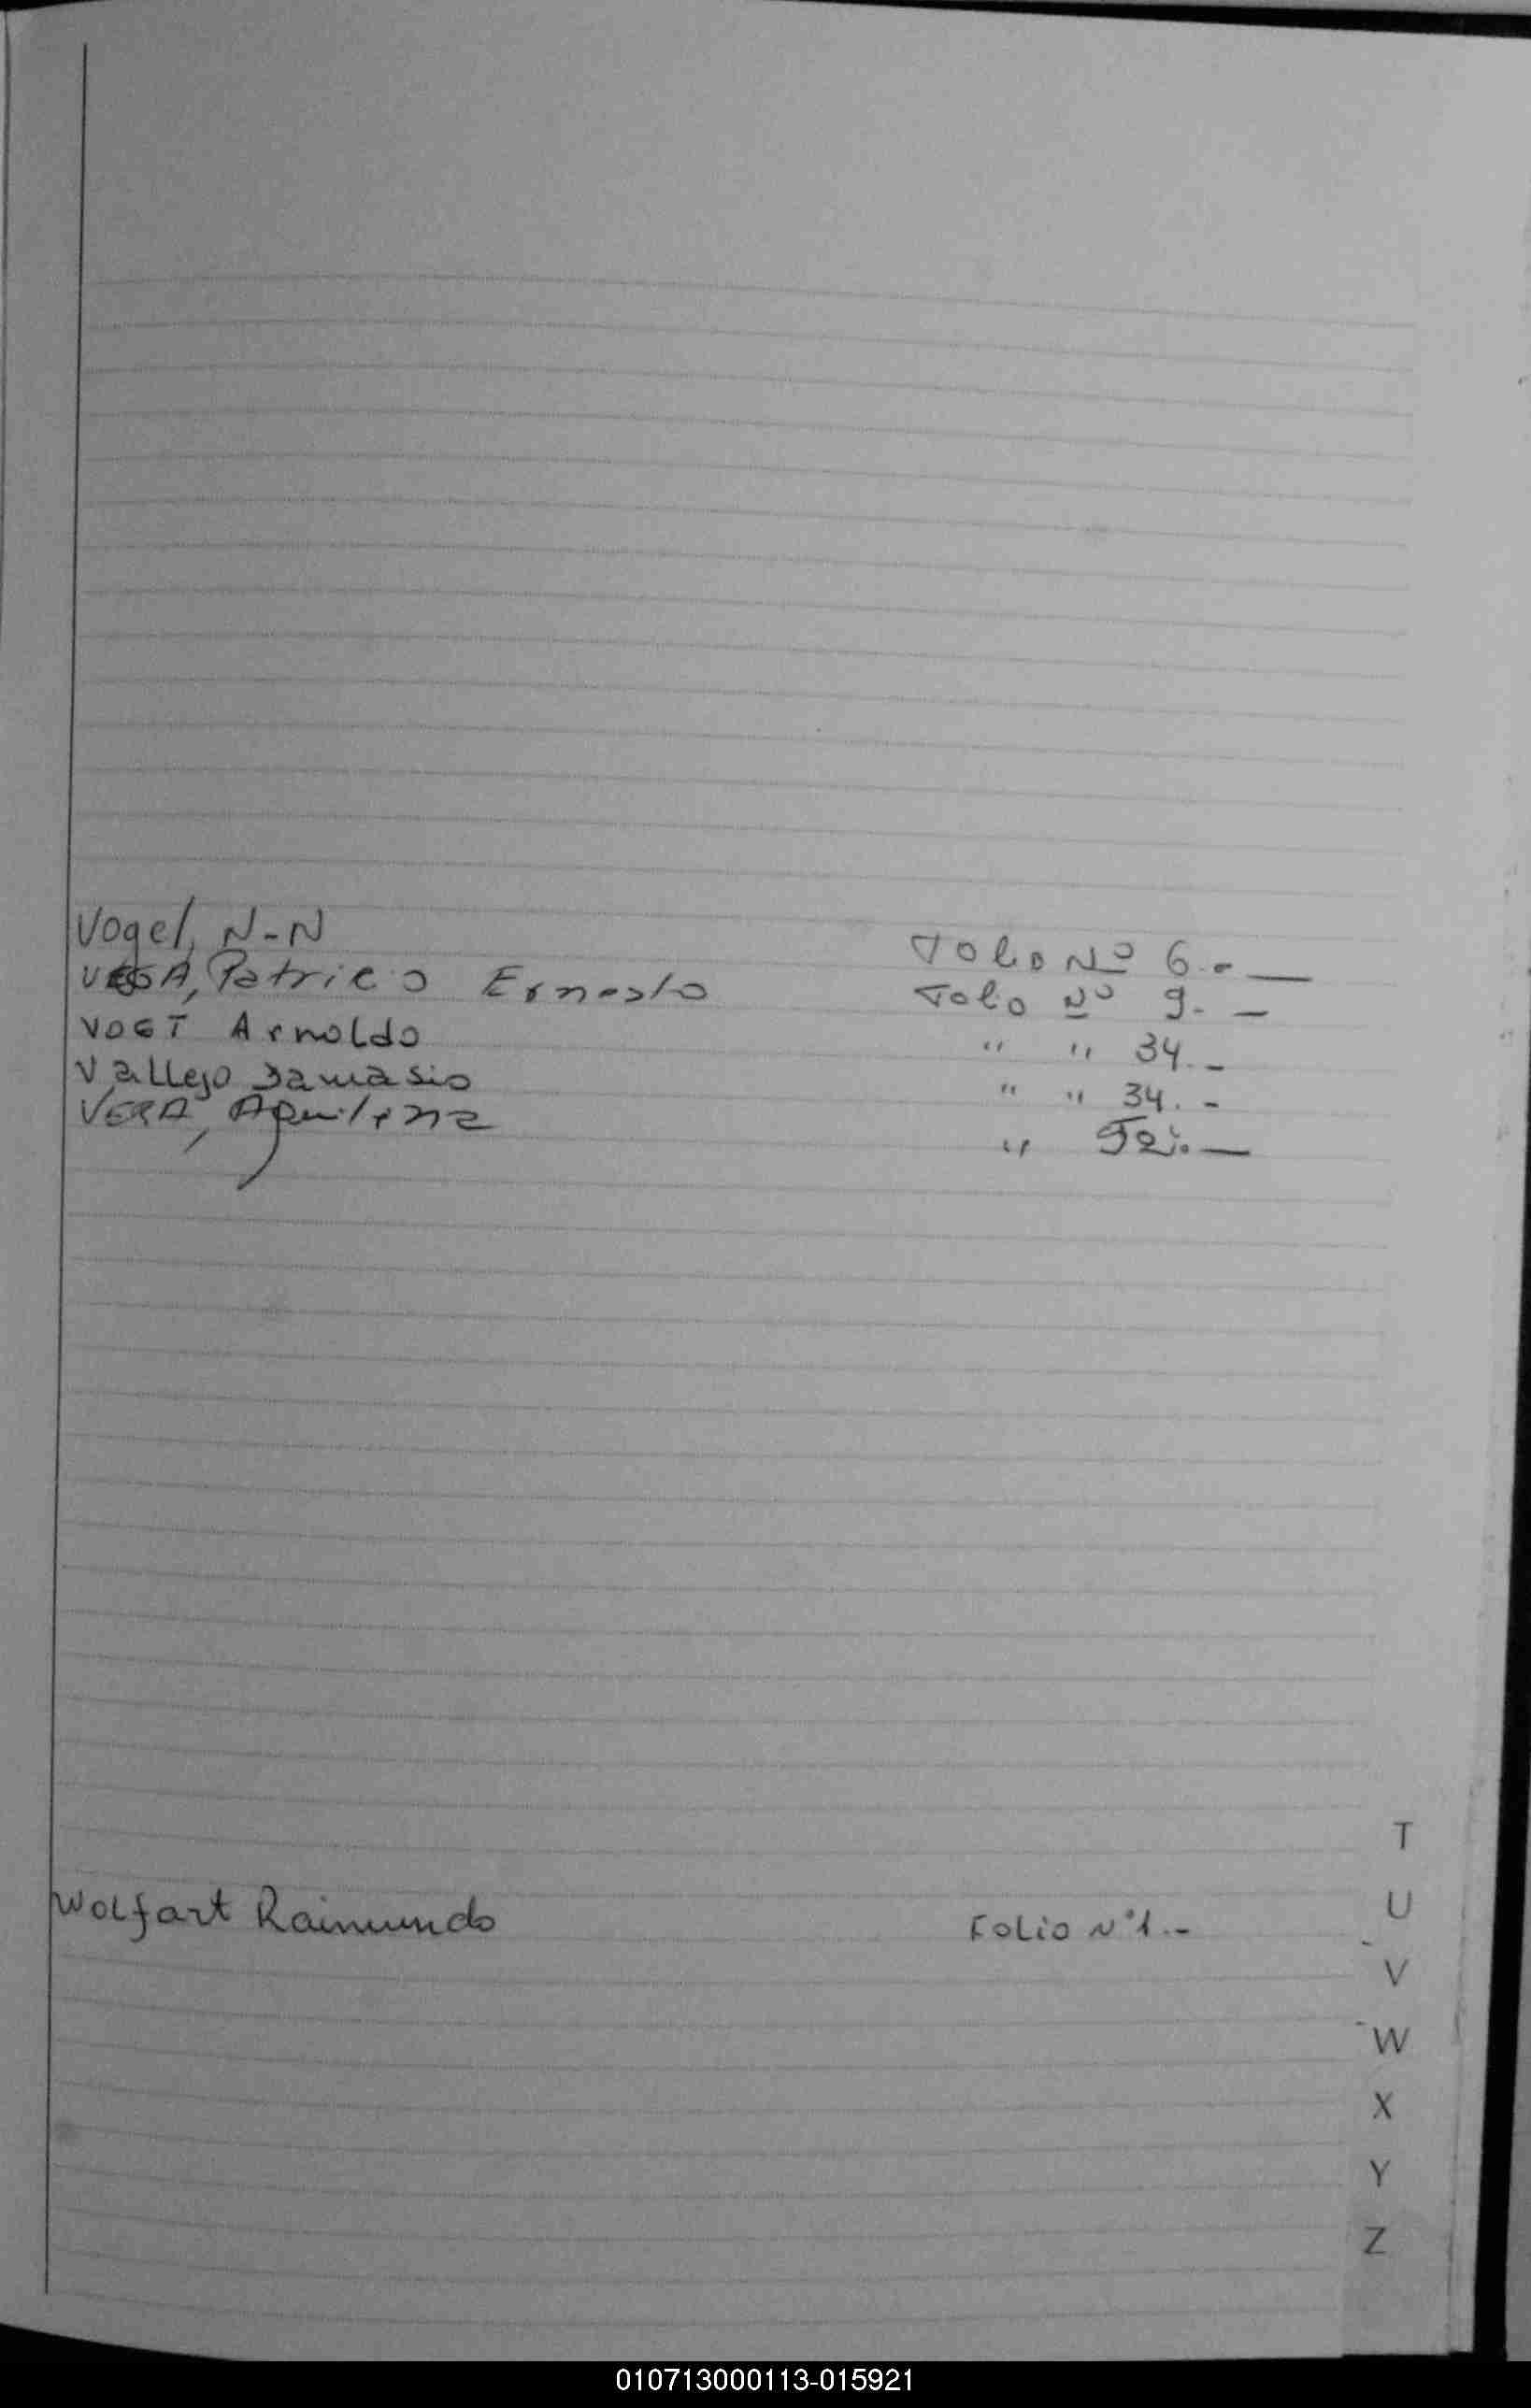 Vogel, N-N Folio Nº 6.-
VEGA, Patricio Ernesto Folio Nº 9.-
VOGT Arnoldo " " 34.-
Vallejo Damasio " " 34.-
VERA, Aquilina "
Wolfart Raimundo Folio Nº 1.-
T
U
V
W
X
Y
Z
010713000113-015921